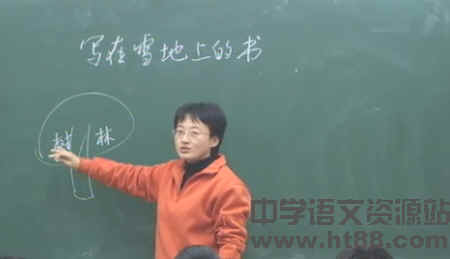 写在雪地上的书
林
中学语文资源站
www.ht88.com